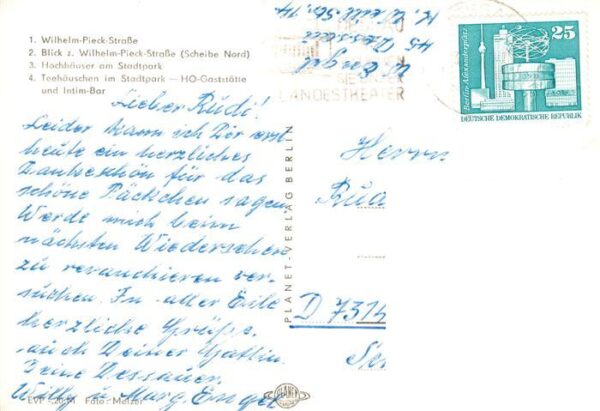 1. Wilhelm-Pieck-Straße
2. Blick z. Wilhelm-Pieck-Straße (Scheibe Nord)
3. Hochhäuser am Stadtpark
4. Teehäuschen im Stadtpark — HO-Gaststätte
und Intim-Bar
Lieber Rudi!
Leider kann ich Dir erst
heute ein herzliches
Dankeschön für das
schöne Päckchen sagen
Werde mich beim
nächsten Wiedersehen
zu revanchieren ver-
suchen. In aller Eile
herzliche Grüße
auch Deiner Gattin
Deine Dessauer
Willy u. Marg. Engel
EVP -,20 M Foto: Metzer
PLANET-VERLAG BERLIN
PLANET
Engel
45 Dessau
K. Weill Str. 14
SIE
LANDESTHEATER
25
Berlin-Alexanderplatz
DEUTSCHE DEMOKRATISCHE REPUBLIK
Herrn
D 7314